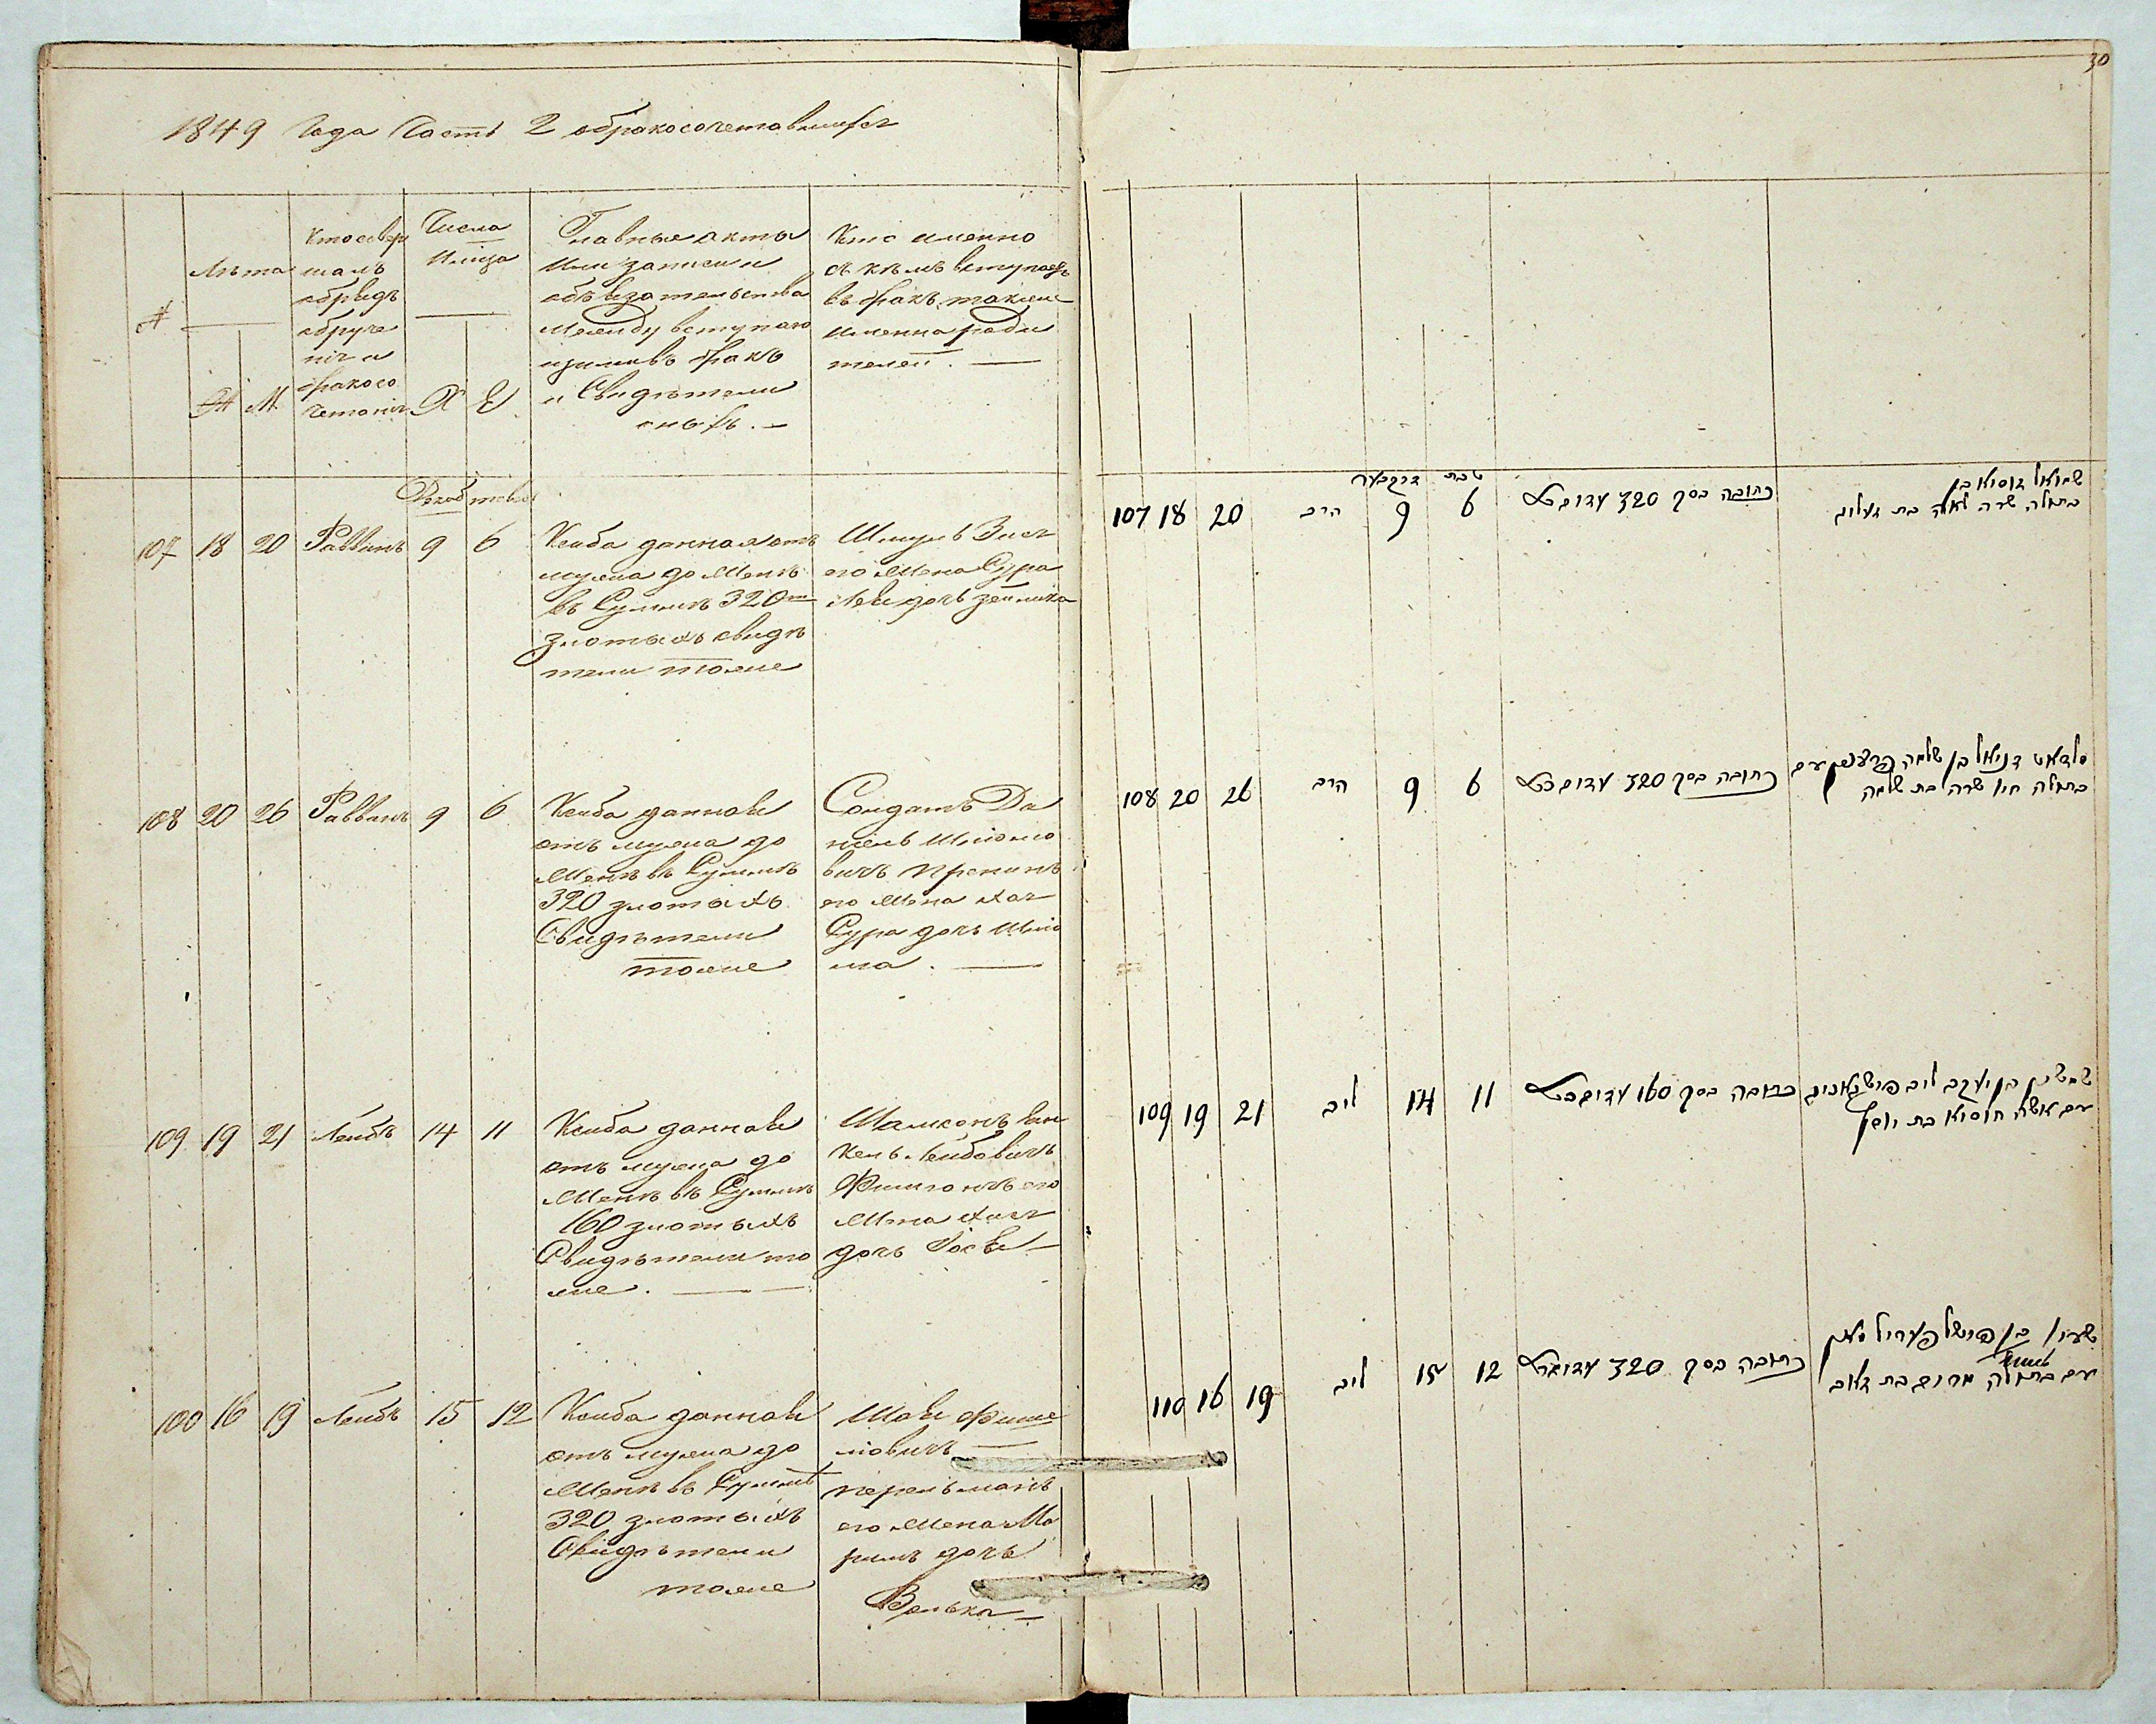 1849 Года Часть 2 обракосочетавшихся
№
Лѣта
Ж
М
Кто совер
шалъ
обрядъ
обруче
нія и
бракосо
четанія
Числа
Х
Е
Главные акты
или записи и
обязательства
между вступаю
щими въ бракъ
и Свидѣтели
оныхъ. —
Кто именно
съ кѣмъ вступаетъ
въ бракъ также
имена роди
телей. —
107 18 20 Раввинъ 9 6
Ксиба данная отъ
мужа до Жены
въ Суммѣ 320
злотыхъ свидѣ
тели тоже
его Жена Сура
108 20 26 Раввинъ 9 6
Ксиба данная
отъ мужа до
Жены въ Суммѣ
320 злотыхъ
Свидѣтели
тоже
Солдатъ Да
ніель Шліомо
вичъ
его Жена Хая
Сура дочь Шліо
ма. —
109 19 21 Лейбъ 14 11
Ксиба данная
отъ мужа до
Жены въ Суммѣ
160 злотыхъ
Свидѣтели то
же. —
Шамсонъ Ян
кель Лейбовичъ
его
Жена
дочь
100 16 19 Лейбъ 15 12
Ксиба данная
отъ мужа до
Жены въ Суммѣ
320 злотыхъ
Свидѣтели
тоже
Фише
ліовичъ —
перельманъ
его Жена Ма
римъ дочь
Волька —
30
טבת דעקבער
107 18 20 הרב 9 6 כתובה בסך 320
שמואל זוסיא בן
בתולה שרה לאה בת
108 20 26 הרב 9 6 כתובה בסך 320
סלדאט דניאל בן שלמה עם
בתולה חיו שרה בת שלמה
109 19 21 ליב 14 11 כתובה בסך 160
בן יעקב ליב
עם אשה חוסיא בת יוסף
110 16 19 ליב 15 12 כתובה בסך 320
בן פישל
עם בתולה מרים בת זאב